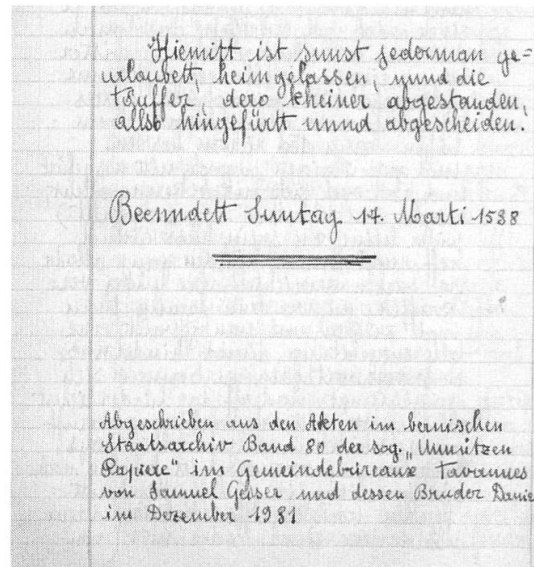 Hiemitt ist sunst jederman ge=
urlaubett, heimgelassen, unnd die
töuffer, dero kheiner abgestanden,
allso hingefürtt unnd abgescheiden.
Beenndett Suntag 17. Marti 1538
Abgeschrieben aus den Akten im bernischen
Staatsarchiv Band 80 der sog. „Unnützen
Papiere“ im Gemeindebüreaux Tavannes
von Samuel Geiser und dessen Bruder Danie
im Dezember 1931